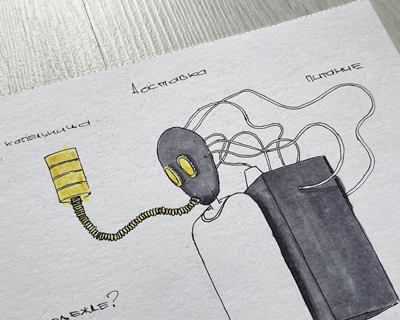 Доставка
питание
капельница
одежде?